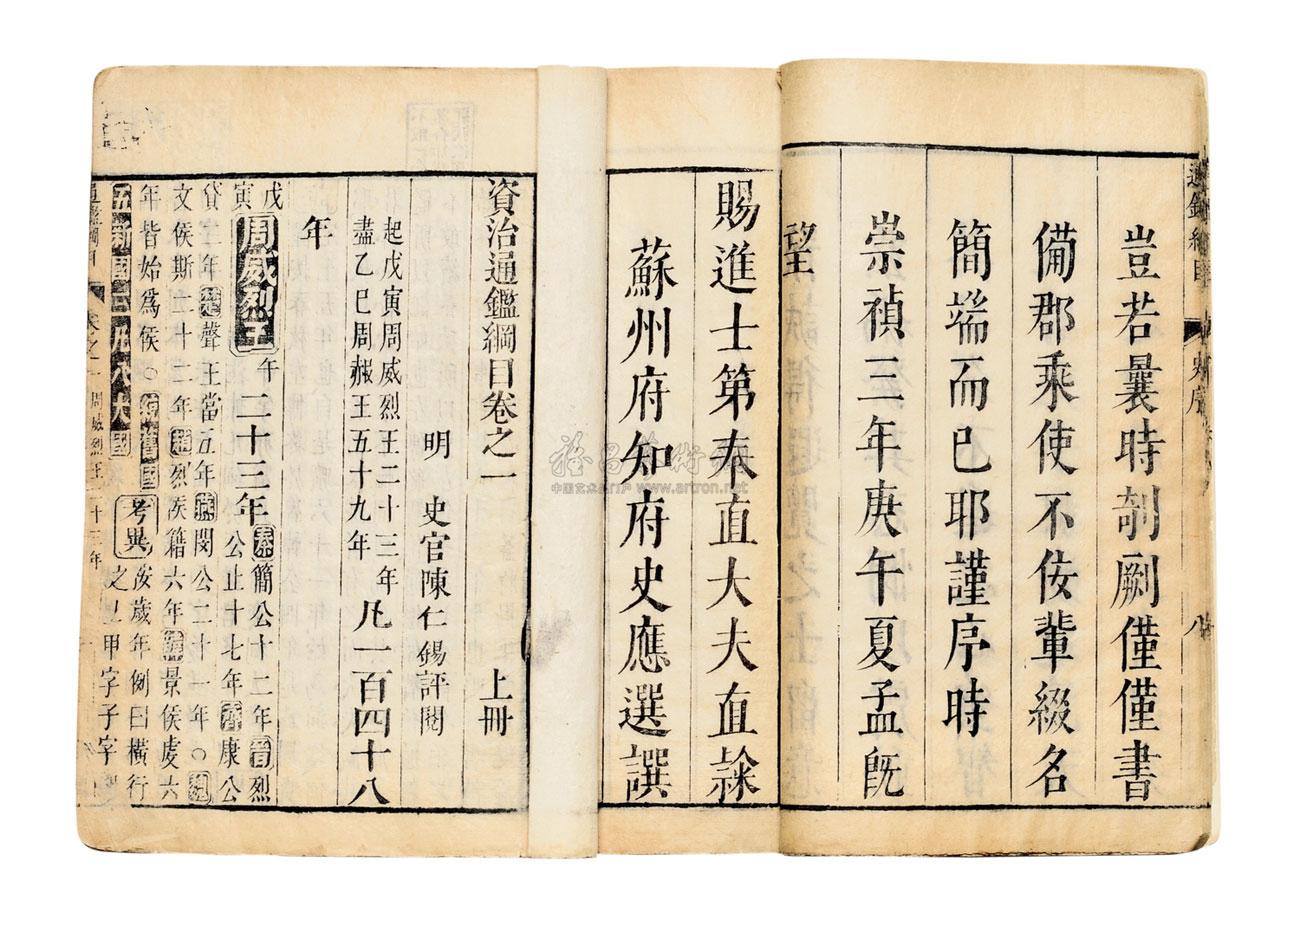 豈若曩時剞劂僅僅書
備郡乘使不佞輩綴名
簡端而已耶謹序時
崇禎三年庚午夏孟旣
望
賜進士第奉直大夫直隸
蘇州府知府史應選譔
資治通鑑綱目卷之一 上冊
明 史官陳仁錫評閱
起戊寅周威烈王二十三年
盡乙巳周赧王五十九年
凡一百四十八
年
戊寅
周威烈王午
二十三年
秦簡公十二年晉烈
公止十七年齊康公
貸二年楚聲王當五年燕閔公三十一年○魏
文侯斯二十二年趙烈侯籍六年韓景侯虔六
年皆始爲侯○舊國
考異
汲歲年例曰橫行
之上甲字子字
五新國三凡八大國
周威烈王二十三年
www.artron.net